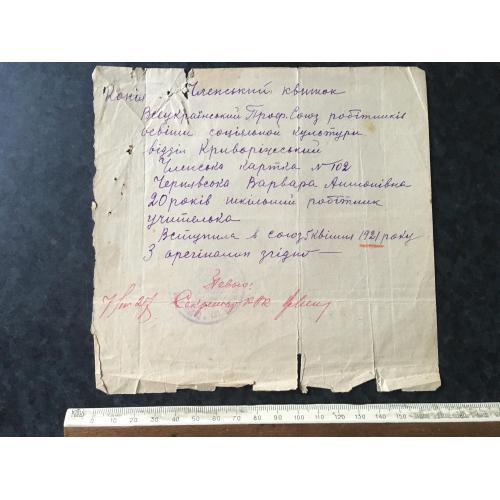 Копія Членський квиток
Всеукраїнський Проф. Союз робітників
освіти соціяльной культури
відділ Криворіжський
Членська картка N 102
Чернявська Варвара Антонівна
20 років шкільний робітник
учителька
Вступила в союз 5 квітня 1921 року
З орегіналим згідно —
Секретар
0 10 20 30 40 50 60 70 80 90 100 110 120 130 140 150 160